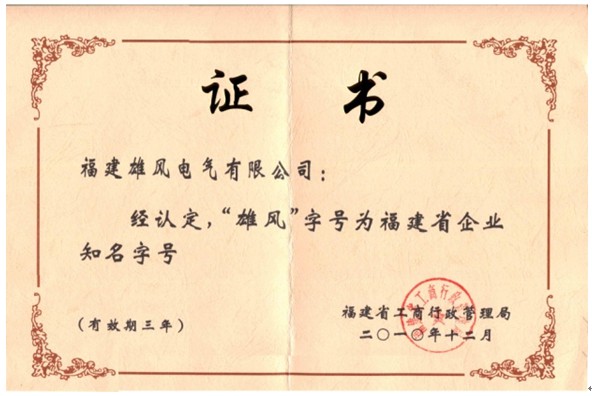 证 书
福建雄风电气有限公司：
经认定，“雄风”字号为福建省企业
知名字号
福建省工商行政管理局
（有效期三年）
二〇一〇年十二月